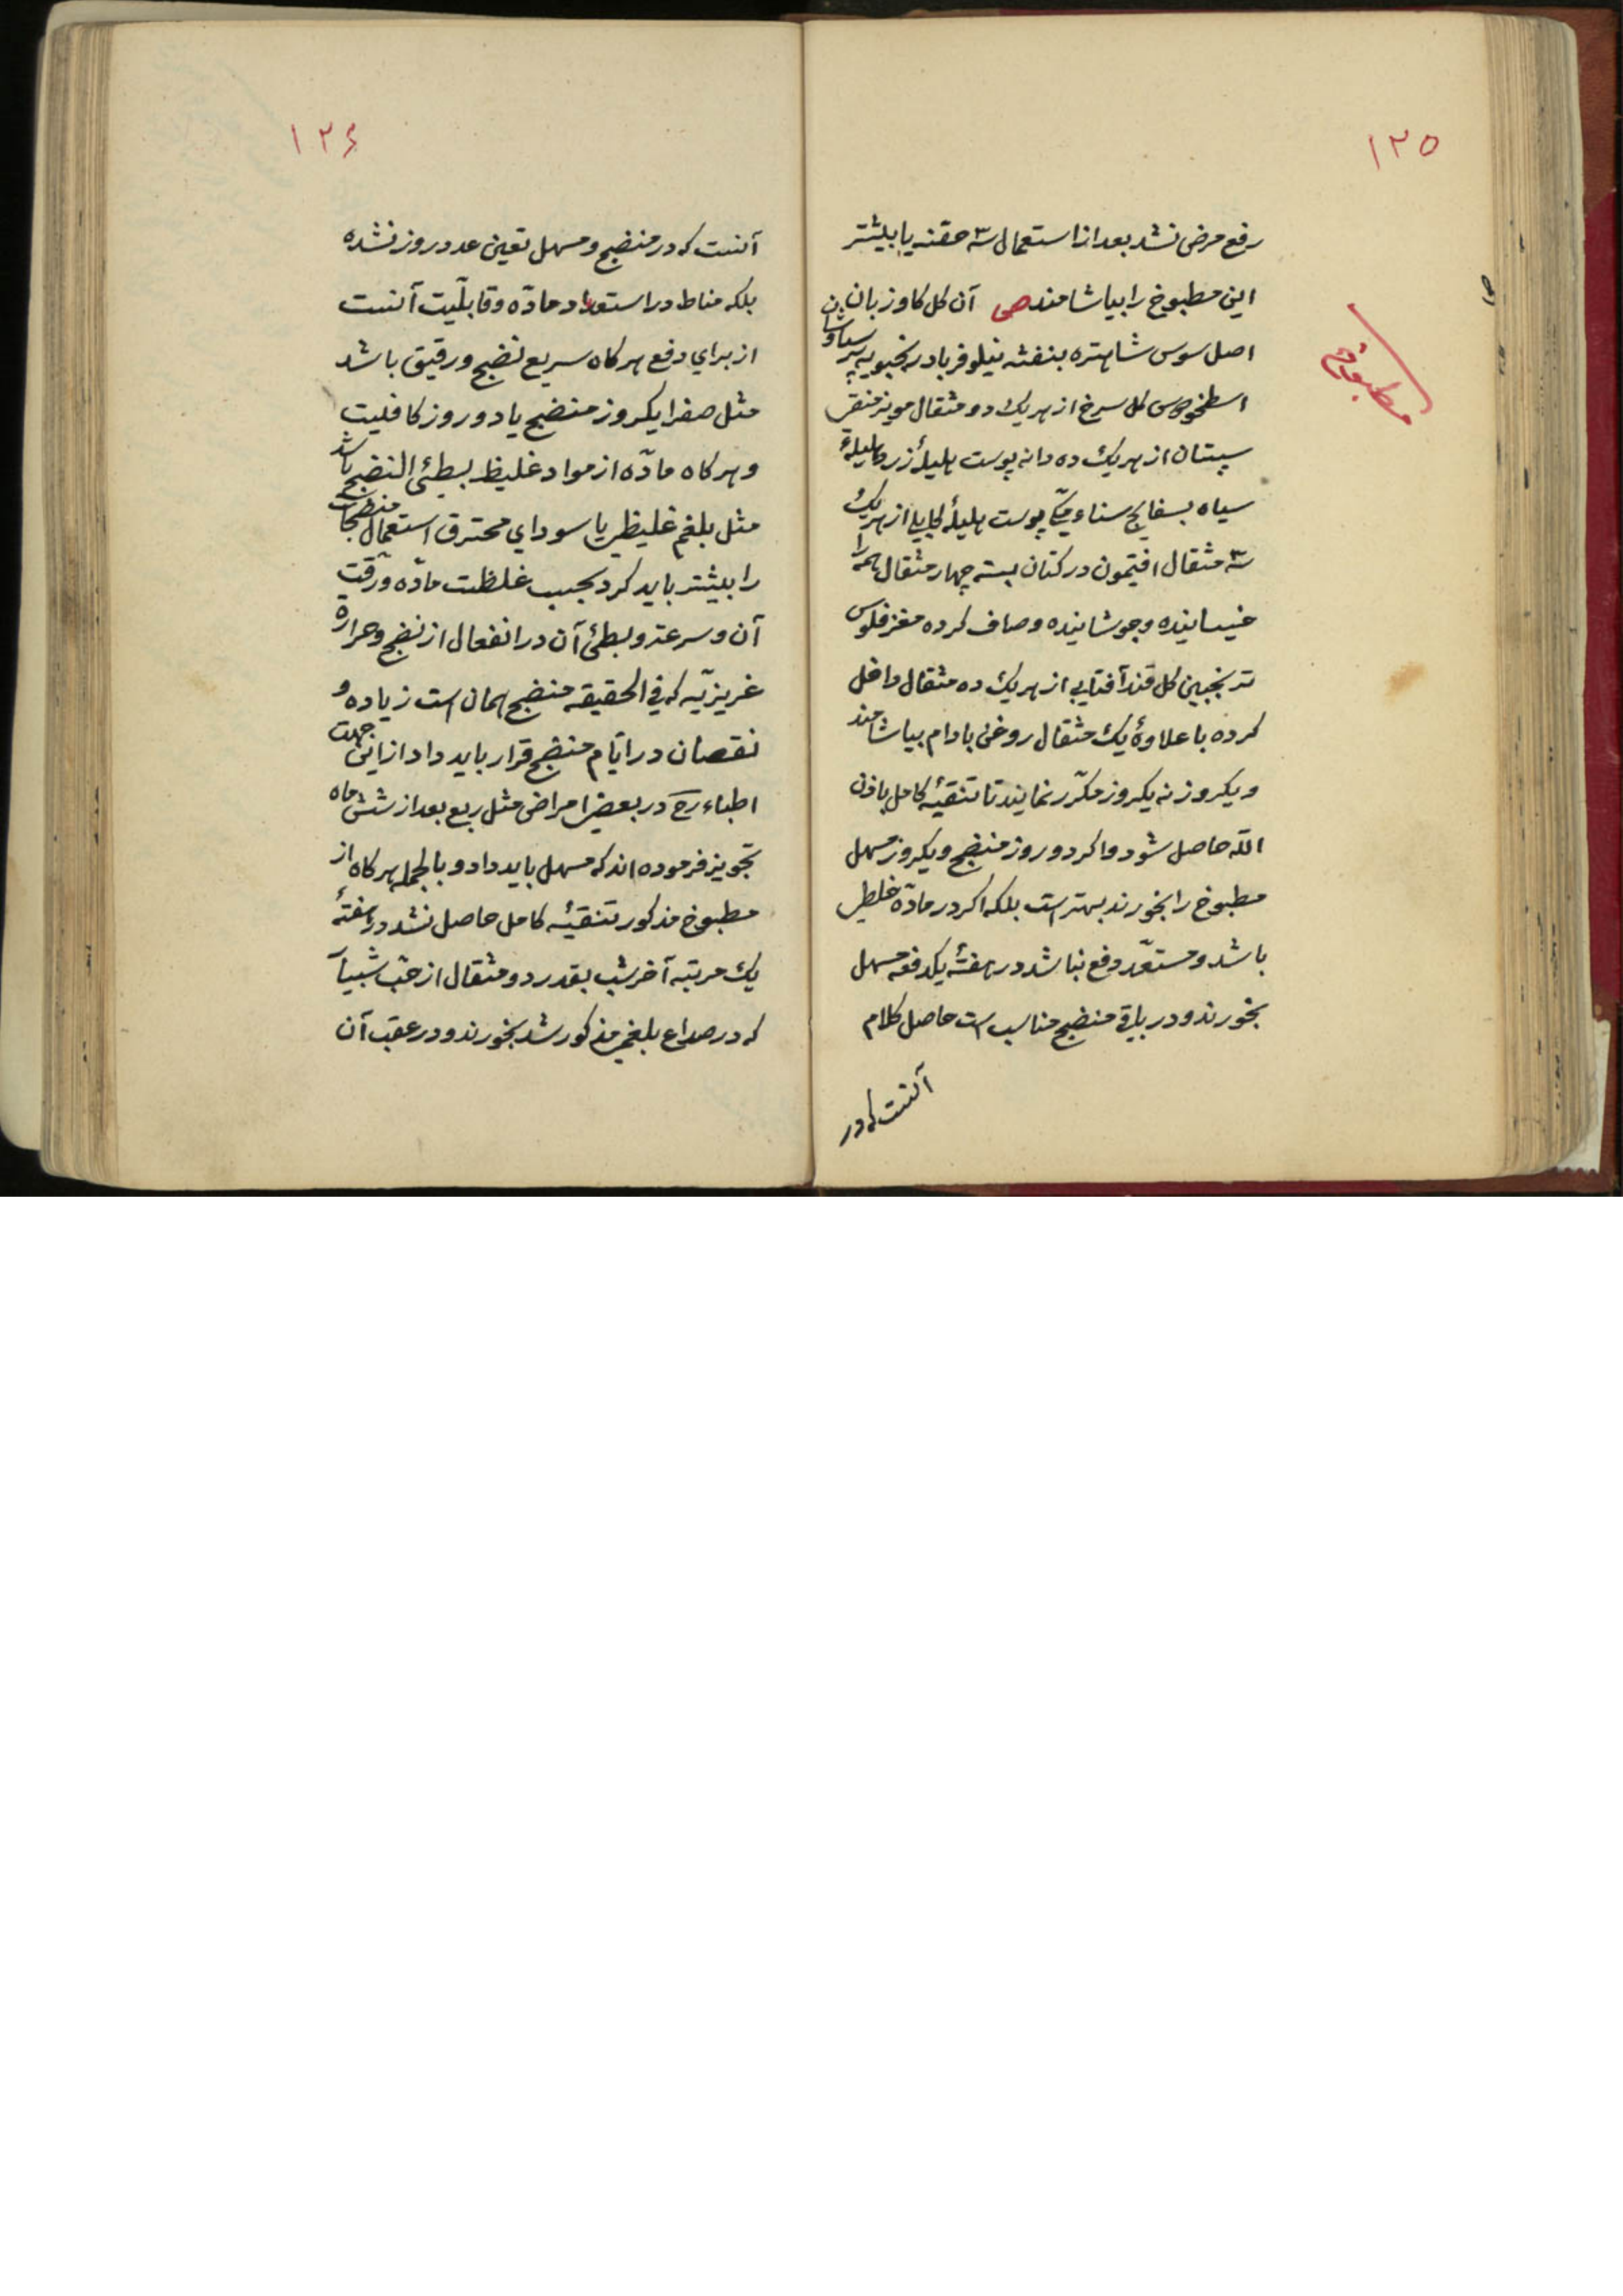 ۱۲۵
رفع مرض نشد بعد از استعمال سه حقنه یا بیشتر
این مطبوخ را بیاشامند ص آن کل کاو زبان
اصل سوس شاهتره بنفشه نیلوفر بادرنجبویه پرسیاوشان
اسطخودوس کل سرخ از هریک دو مثقال مویز منقی
سپستان از هریک ده دانه پوست هلیلهٔ زرد هلیلهٔ
سیاه بسفایج سناء مکی پوست هلیلهٔ کابلی از هریک
سه مثقال افتیمون در کتان بسته چهار مثقال همه را
خیسانیده و جوشانیده و صاف کرده مغز فلوس
ترنجبین کل قند آفتابی از هریک ده مثقال داخل
کرده با علاوهٔ یک مثقال روغن بادام بیاشامند
و یکروز نه یکروز مکرّر نمایند تا تنقیهٔ کامل باذن
اللّه حاصل شود و اکر دو روز منضج و یکروز مسهل
مطبوخ را بخورند بهتر است بلکه اکر در مادّه غلظی
باشد و مستعدّ دفع نباشد در هفتهٔ یکدفعه مسهل
بخورند و در باقی منضج مناسب است حاصل کلام
آنست که در
۱۲۶
آنست که در منضج و مسهل تعین عدد روز نشده
بلکه مناط در استعداد مادّه و قابلّیت آنست
از برای دفع هرکاه سریع نضج و رقیق باشد
مثل صفرا یکروز منضج یا دو روز کافیست
و هرکاه مادّه از مواد غلیظ بسطیء النضج باشد
مثل بلغم غلیظ یا سودای محترق استعمال منضجات
را بیشتر باید کرد بحسب غلظت مادّه و رقّت
آن و سرعة و بطئ آن در انفعال از نضج و حرارة
غریزیّه که فی الحقیقه منضج همان است زیاده و
نقصان در ایّام منضج قرار باید داد از این جهت
اطباء رح در بعض امراض مثل ربع بعد از شش ماه
تجویز فرموده اند که مسهل باید داد و بالجمله هرکاه از
مطبوخ مذکور تنقیهٔ کامل حاصل نشد در هفتهٔ
یک مرتبه آخر شب بقدر دو مثقال از حبّ شبیار
که در صداع بلغمی مذکور شد بخورند و در عقب آن